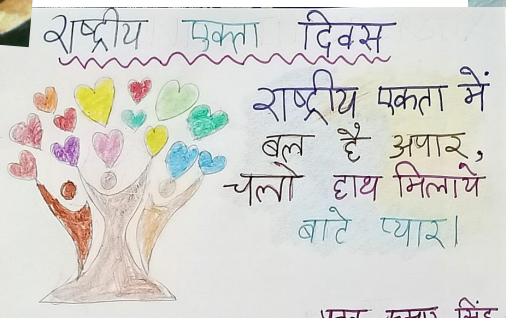 राष्ट्रीय एकता दिवस
राष्ट्रीय एकता में
बल है अपार,
चलो हाथ मिलाये
बाटे प्यार।
कुमार सिंह